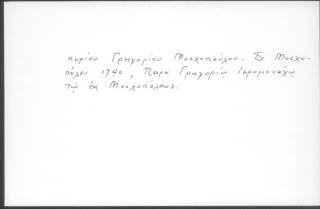 κυρίου Γρηγορίου Μοσχοπούλου. Ἐν Μοσχο-
πόλει 1740, Παρὰ Γρηγορίῳ Ἱερομονάχῳ
τῷ ἐκ Μοσχοπόλεως.